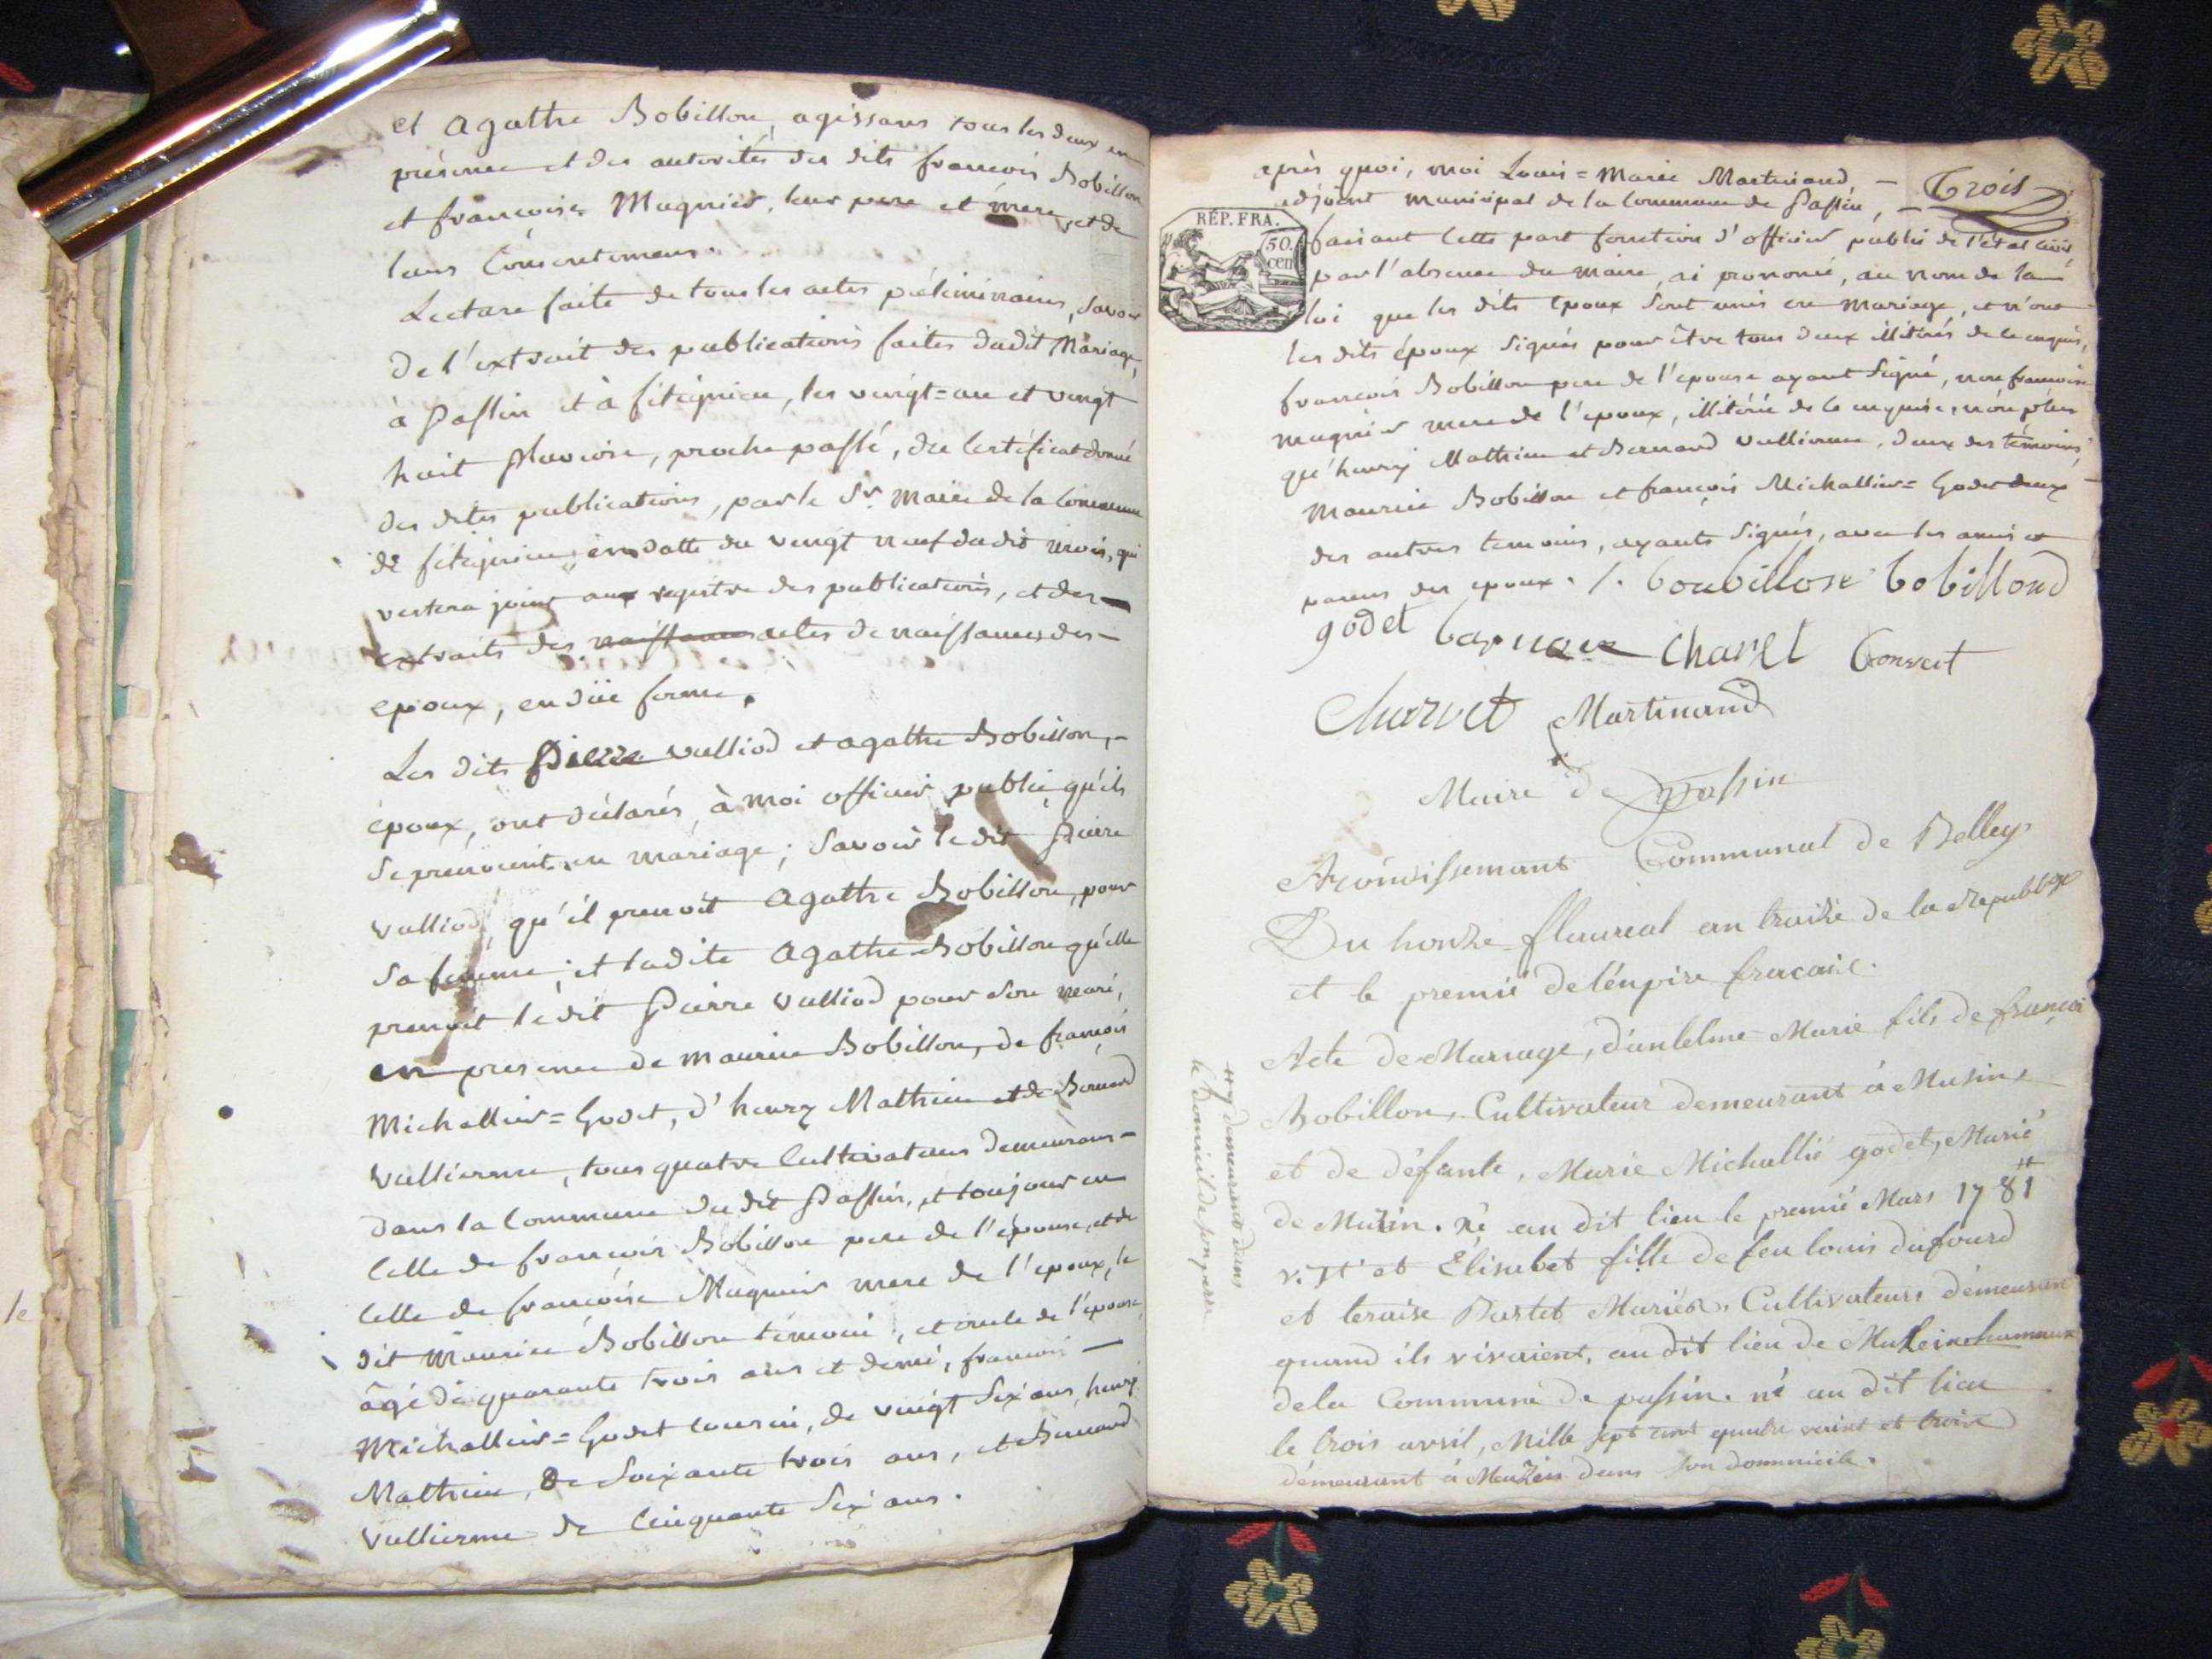 et agathe Bobillon, agissans tous les deux en
présence et des autorités des dits françois Bobillon
et françoise Magnier, leur pere et mere, et de
leurs Consentemens.
Lecture faite de tous les actes préliminaires, savoir
De l'extrait des publications faites dudit Mariage,
à Passin et à fitignieu, les vingt=un et vingt
huit pluviose, proche passé, du Certificat donné
des dites publications, par le Sr. Maire de la Commune
de fitignieu, en datte du vingt neuf dudit mois, qui
restera joint aux registre des publications, et des
extraits des naissances actes de naissances des
epoux, en düe forme.
Les dits Pierre Vulliod et agathe Bobillon,
époux, ont déclarés, à moi officier public, qu'ils
se prenoient en mariage; Savoir le dit Pierre
Vulliod, qu'il prenoit Agathe Bobillon, pour
sa femme; et ladite Agathe Bobillon qu'elle
prenoit le dit Pierre Vulliod pour son mari,
en presence de maurice Bobillon, de françois
Michallier=Godet, d'henry Mathieu et de Bernard
Vullierme, tous quatre Cultivateurs demeurans
dans la Commune du dit Passin, et toujours en
Celle de françois Bobillon pere de l'épouse, et de
Celle de françoise Magnier mere de l'epoux, le
dit Maurice Bobillon témoin, et oncle de l'epouse,
âgé de quarante trois ans et demi, françois
Michallier=Godet cousin, de vingt six ans, henry
Mathieu, de soixante trois ans, et Bernard
Vullierme de Cinquante Six ans.
après quoi, moi Louis=Marie Martinand
Trois
adjoint municipal de la Commune de Passin,
RÉP. FRA.
50. cen
faisant Cette part fonction d'officier public de l'état civil,
par l'absence du maire, ai prononcé, au nom de la
loi que les dits epoux sont unis en mariage, et n'ont
les dits époux signés pour être tous deux illitérés de ce enquis,
françois Bobillon pere de l'epouse ayant signé, non françoise
magnier mere de l'epoux, illitérée de ce enquise, non plus
qu'henry Mathieu et Bernard Vullierme, deux des témoins,
Maurice Bobillon et françois Michallier=Godet deux
des autres temoins, ayants signés, avec les amis et
parens des epoux. /. boubillose bobillond
godet Charvet Convert
Charvet Martinand
Maire de passin
Arondissemant Communal de Belley
Du honze fleureal an traizé de la republiqe
et le premié de lénpire francaise.
Acte de Mariage, d'anlelme Marie fils de françoi
Bobillon, Cultivateur demeurant à Musin
et de défante, Marie Michallié godet, Marié
de Muzin. né au dit lieu le premié Mars 1781 #
V.st et Élisabet fille de feu louis dufourd
et teraise Bartet Mariés, Cultivateurs démeurant
quand ils vivaient, au dit lieu de Muzein hameaux
de la Commune de passin. né au dit lieu
le trois avril, Mille sept cent quatre vaint et trois
démeurant à Meuzin dans son dommicile.
# y demeurant dans
le domicil de son pere